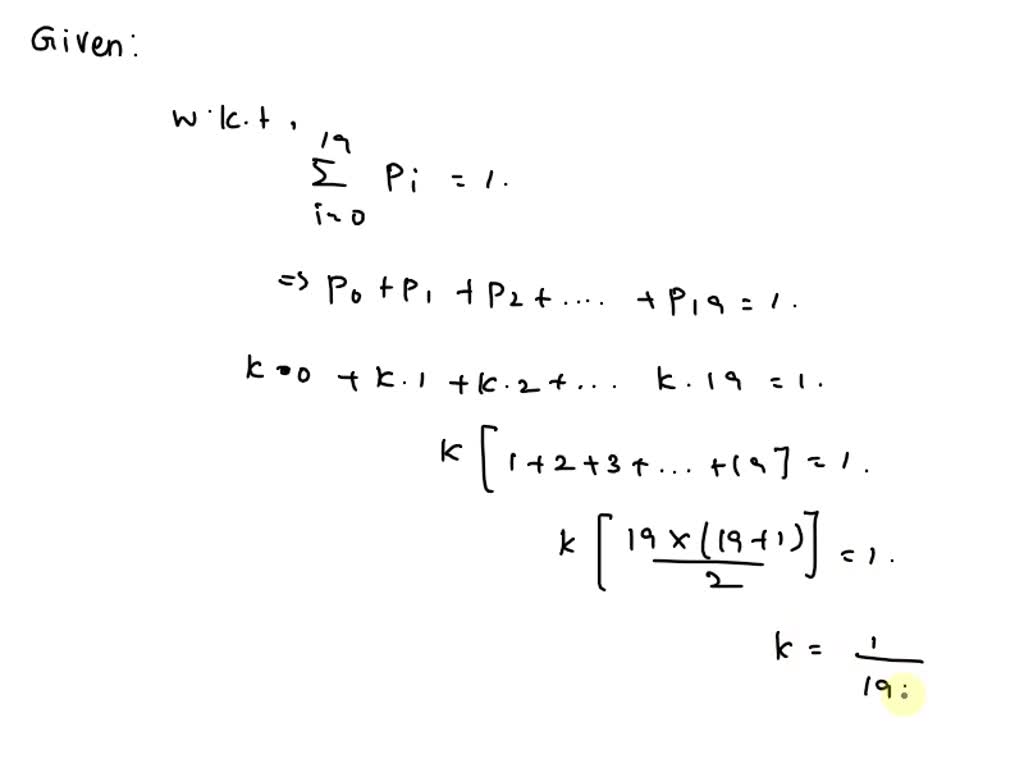 Given:
w.k.t,
19
Σ Pi = 1.
i=0
=> P0 + P1 + P2 + .... + P19 = 1.
k.0 + k.1 + k.2 + ... k.19 = 1.
k [1+2+3+ ... +19] = 1.
k [19 x (19+1) / 2] = 1.
k = 1
19: